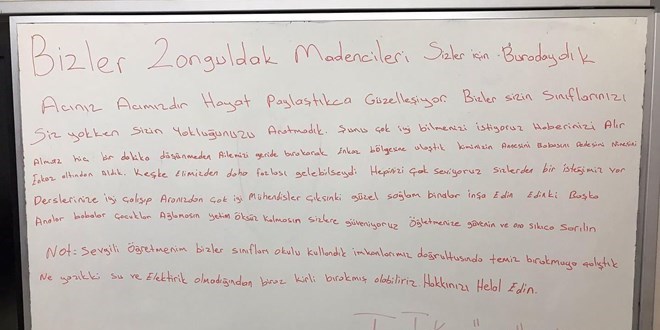 Bizler Zonguldak Madencileri Sizler için Buradaydık
Acınız Acımızdır Hayat Paylaştıkca Güzelleşiyor. Bizler sizin Sınıflarınızı
Siz yokken Sizin Yokluğunuzu Aratmadık. Şunu çok iyi bilmenizi istiyoruz Haberinizi Alır
Almaz hiç bir dakika düşünmeden Ailemizi geride bırakarak Enkaz bölgesine ulaştık kiminizin Annesini Babasını Dedesini Ninesini
Enkaz altından Aldık. Keşke Elimizden daha fazlası gelebilseydi Hepinizi Çok seviyoruz sizlerden bir isteğimiz var
Derslerinize iyi çalışıp Aranızdan çok iyi Mühendisler çıksınki güzel sağlam binalar inşa Edin Edinki Başka
Analar babalar çocuklar Ağlamasın yetim öksüz kalmasın sizlere güveniyoruz Öğretmenize güvenin ve ona sıkıca Sarılın
Not: Sevgili Öğretmenim bizler sınıfları okulu kullandık imkanlarımız doğrultusunda temiz bırakmaya çalıştık
Ne yazıkki su ve Elektirik olmadığından biraz kirli bırakmış olabiliriz Hakkınızı Helal Edin.